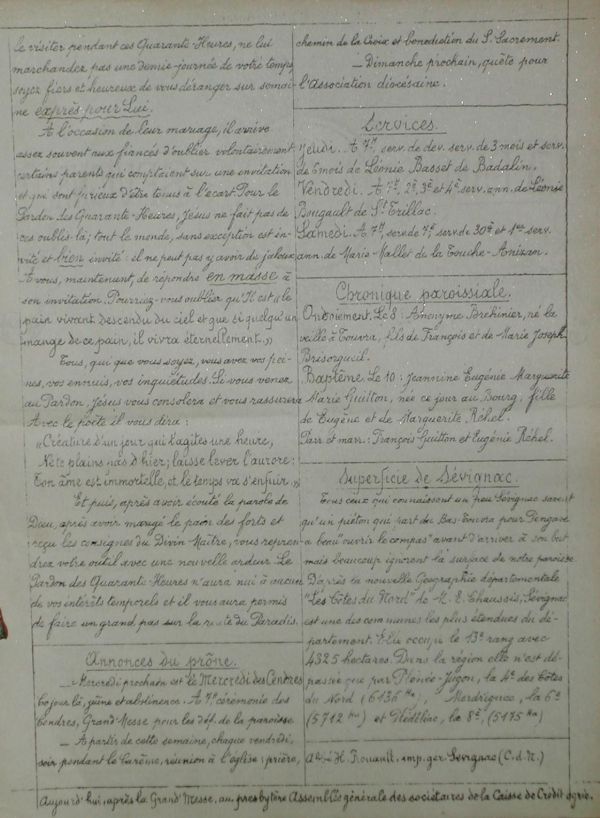 le visiter pendant ces Quarante-Heures, ne lui
marchandez pas une demie-journée de votre temps,
soyez fiers et heureux de vous déranger sur semai-
ne exprès pour Lui.
A l'occasion de leur mariage, il arrive
assez souvent aux fiancés d'oublier volontairement
certains parents qui comptaient sur une invitation
et qui sont furieux d'être tenus à l'écart. Pour le
Pardon des Quarante-Heures, Jésus ne fait pas de
ces oublis-là ; tout le monde, sans exception est in-
vité et bien invité : il ne peut pas y avoir de jaloux.
A vous, maintenant, de répondre en masse à
son invitation. Pourriez-vous oublier qu'Il est « le
pain vivant descendu du ciel et que si quelqu'un
mange de ce pain, il vivra éternellement. »
Tous, qui que vous soyez, vous avez vos pei-
nes, vos ennuis, vos inquiétudes. Si vous venez
au Pardon, Jésus vous consolera et vous rassurera
Avec le poète il vous dira :
« Créature d'un jour qui t'agites une heure,
Ne te plains pas d'hier ; laisse lever l'aurore :
Ton âme est immortelle, et le temps va s'enfuir. »
Et puis, après avoir écouté la parole de
Dieu, après avoir mangé le pain des forts et
reçu les consignes du Divin Maître, vous repren-
drez votre outil avec une nouvelle ardeur. Le
Pardon des Quarante-Heures n'aura nui à aucun
de vos intérêts temporels et il vous aura permis
de faire un grand pas sur la route du Paradis.
Annonces du prône.
— Mercredi prochain est le Mercredi des Cendres
Ce jour là, jeûne et abstinence. A 7h cérémonie des
Cendres, Grand'Messe pour les déf. de la paroisse.
— A partir de cette semaine, chaque vendredi,
soir pendant le Carême, réunion à l'église : prière,
chemin de la Croix et bénédiction du S. Sacrement.
— Dimanche prochain, quête pour
l'Association diocésaine.
Services.
Jeudi. A 7h, serv. de dev. serv. de 3 mois et serv.
de 6 mois de Léonie Basset de Badalin.
Vendredi. A 7h, 2e, 3e et 4e serv. ann. de Léonie
Bougault de St Trillac.
Samedi. A 7h, serv. de 7e, serv. de 30e et 1er serv.
ann. de Marie Mallet de la Touche-Amizan.
Chronique paroissiale.
Ondoiement. Le 8 : Anonyme Brehinier, né la
veille à Touvra, fils de François et de Marie Joseph
Brisorgueil.
Baptême. Le 10 : Jeannine Eugénie Marguerite
Marie Guitton, née ce jour au Bourg, fille
de Eugène et de Marguerite Réhel.
Parr. et marr. : François Guitton et Eugénie Réhel.
Superficie de Sévignac.
Tous ceux qui connaissent un peu Sévignac savent
qu'un piéton qui part du Bas-Touvra pour Pengave
a beau "ouvrir le compas" avant d'arriver à son but
mais beaucoup ignorent la surface de notre paroisse.
D'après la nouvelle Géographie départementale
"Les Côtes du Nord" de M. E. Chaussis, Sévignac
est une des communes les plus étendues du dé-
partement. Elle occupe le 13e rang avec
4325 hectares. Dans la région elle n'est dé-
passée que par Plénée-Jugon, la 4e des Côtes
du Nord (6136 Ha), Merdrignac, la 6e
(5712 Ha) et Plédéliac, la 8e, (5175 Ha)
Abbé H. Rouault, imp. ger. Sévignac (C.d.N.)
Aujourd'hui, après la Grand'Messe, au presbytère Assemblée générale des sociétaires de la Caisse de Crédit agric.